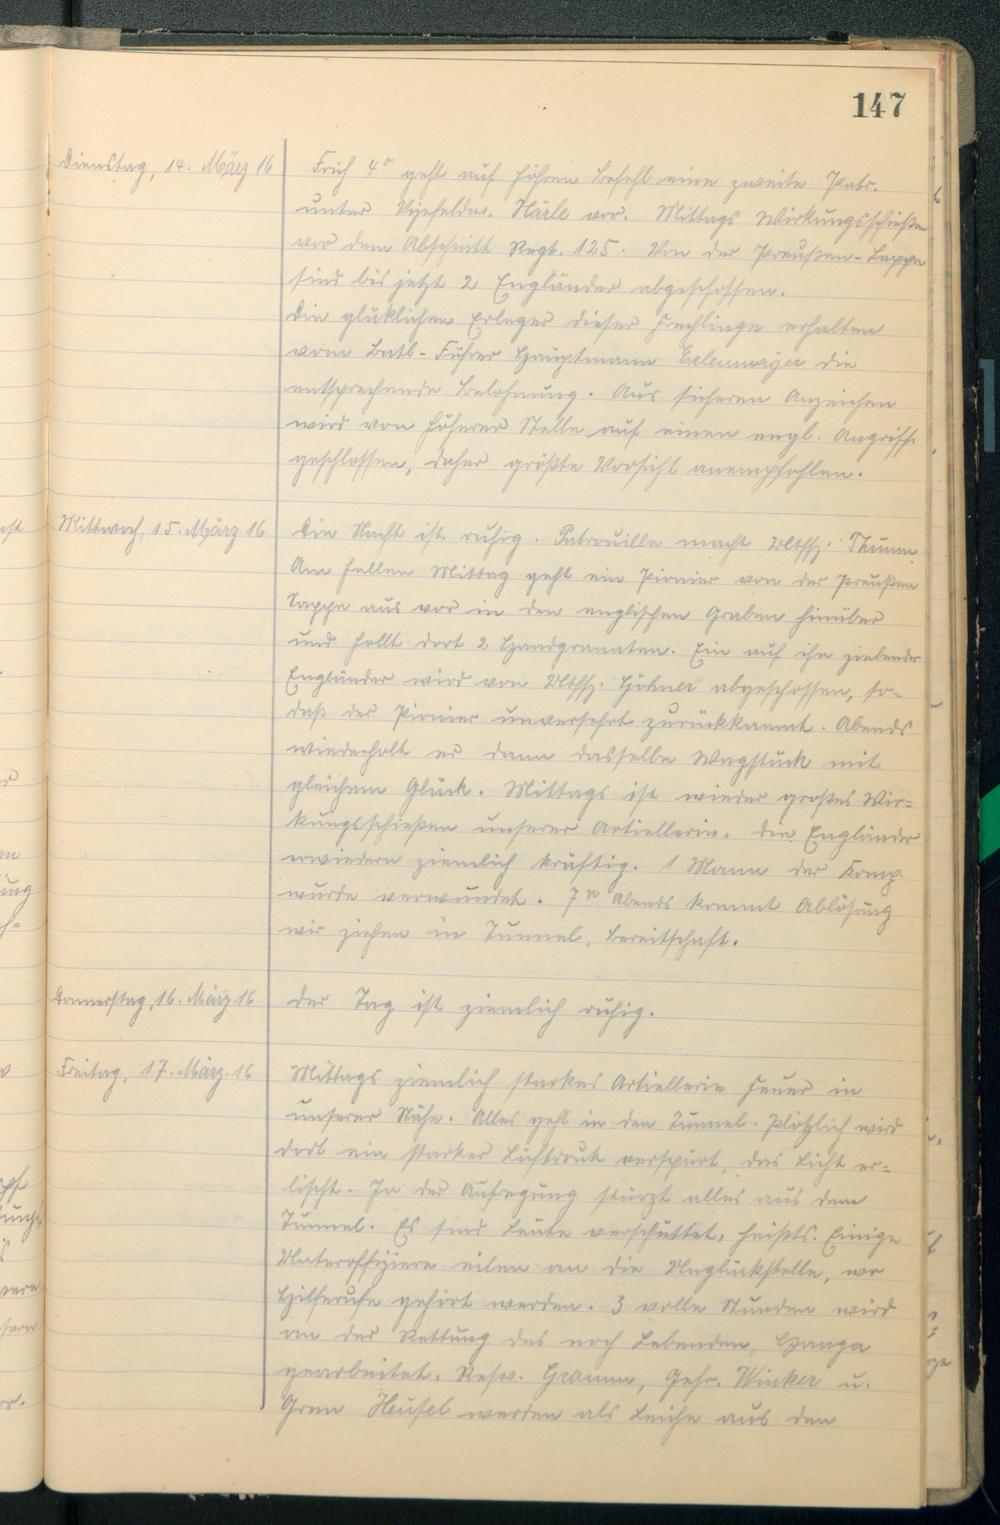 147
Dienstag, 14. März 16
Früh 4° geht auf höhern Befehl eine zweite Patr.
unter Vizefeldw. Härle vor. Mittags Wirkungsschießen
vor dem Abschnitt Regt. 125. Von der Preußen-Sappe
sind bis jetzt 2 Engländer abgeschossen.
Die glüklichen Erleger dieser Frechlinge erhalten
vom Batl-Führer Hauptmann Erlenmajer die
entsprechende Belohnung. Aus sicheren Anzeichen
wird von höherer Stelle auf einen engl. Angriff
geschlossen, daher größte Vorsicht anempfohlen.
Mittwoch, 15. März 16
Die Nacht ist ruhig. Patrouille macht Utffz. Thumm
Am hellen Mittag geht ein Pionier von der Preußen
Sappe aus vor in den englischen Graben hinüber
und hollt dort 2 Handgranaten. Ein auf ihn zielender
Engländer wird von Utffz. Höhner abgeschossen, so-
daß der Pionier unversehrt zurückkommt. Abends
wiederholt er dann dasselbe Wagstück mit
gleichem Glück. Mittags ist wieder großes Wir-
kungsschießen unserer Artiellerie. Die Engländer
erwiedern ziemlich kräftig. 1 Mann der Komp.
wurde verwundet. 7 Abends kommt Ablösung
wir ziehen in Tunnel, Bereitschaft.
Donnerstag, 16. März 16
Der Tag ist ziemlich ruhig.
Freitag, 17. März. 16
Mittags ziemlich starkes Artiellerie Feuer in
unserer Nähe. Alles geht in den Tunnel. Plötzlich wird
dort ein starker Luftdruk verspürt, das Licht er-
lischt. In der Aufregung stürzt alles aus dem
Tunnel. Es sind Leute verschüttet, heißts. Einige
Unteroffiziere eilen an die Unglückstelle, wo
Hilferufe gehört werden. 3 volle Stunden wird
an der Rettung des noch Lebenden,
gearbeitet. Resv. Gramm, Gefr. Winker u.
Gren Heusel werden als Leiche aus den